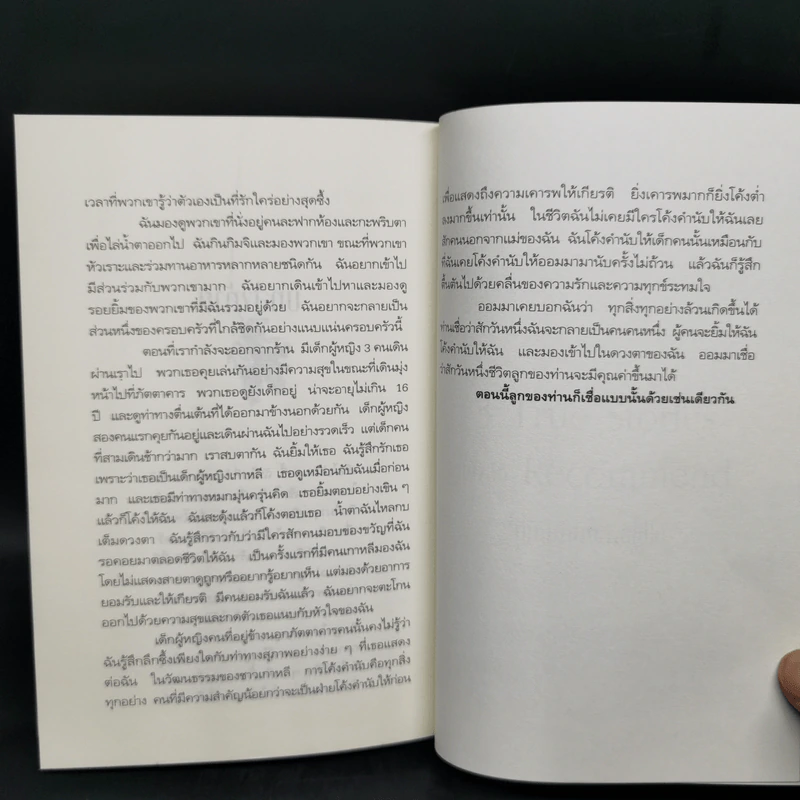 เวลาที่พวกเขารู้ว่าตัวเองเป็นที่รักใคร่อย่างสุดซึ้ง
ฉันมองดูพวกเขาที่นั่งอยู่คนละฟากห้องและกะพริบตา
เพื่อไล่น้ำตาออกไป ฉันกินกิมจิและมองพวกเขา ขณะที่พวกเขา
หัวเราะและร่วมทานอาหารหลากหลายชนิดกัน ฉันอยากเข้าไป
มีส่วนร่วมกับพวกเขามาก ฉันอยากเดินเข้าไปหาและมองดู
รอยยิ้มของพวกเขาที่มีฉันรวมอยู่ด้วย ฉันอยากจะกลายเป็น
ส่วนหนึ่งของครอบครัวที่ใกล้ชิดกันอย่างแนบแน่นครอบครัวนี้
ตอนที่เรากำลังจะออกจากร้าน มีเด็กผู้หญิง 3 คนเดิน
ผ่านเราไป พวกเธอคุยเล่นกันอย่างมีความสุขในขณะที่เดินมุ่ง
หน้าไปที่ภัตตาคาร พวกเธอดูยังเด็กอยู่ น่าจะอายุไม่เกิน 16
ปี และดูท่าทางตื่นเต้นที่ได้ออกมาข้างนอกด้วยกัน เด็กผู้หญิง
สองคนแรกคุยกันอยู่และเดินผ่านฉันไปอย่างรวดเร็ว แต่เด็กคน
ที่สามเดินช้ากว่ามาก เราสบตากัน ฉันยิ้มให้เธอ ฉันรู้สึกรักเธอ
เพราะว่าเธอเป็นเด็กผู้หญิงเกาหลี เธอดูเหมือนกับฉันเมื่อก่อน
มาก และเธอมีท่าทางหมกมุ่นครุ่นคิด เธอยิ้มตอบอย่างเขิน ๆ
แล้วก็โค้งให้ฉัน ฉันสะดุ้งแล้วก็โค้งตอบเธอ น้ำตาฉันไหลกบ
เต็มดวงตา ฉันรู้สึกราวกับว่ามีใครสักคนมอบของขวัญที่ฉัน
รอคอยมาตลอดชีวิตให้ฉัน เป็นครั้งแรกที่มีคนเกาหลีมองฉัน
โดยไม่แสดงสายตาดูถูกหรืออยากรู้อยากเห็น แต่มองด้วยอาการ
ยอมรับและให้เกียรติ มีคนยอมรับฉันแล้ว ฉันอยากจะตะโกน
ออกไปด้วยความสุขและกดตัวเธอแนบกับหัวใจของฉัน
เด็กผู้หญิงคนที่อยู่ข้างนอกภัตตาคารคนนั้นคงไม่รู้ว่า
ฉันรู้สึกลึกซึ้งเพียงใดกับท่าทางสุภาพอย่างง่าย ๆ ที่เธอแสดง
ต่อฉัน ในวัฒนธรรมของชาวเกาหลี การโค้งคำนับคือทุกสิ่ง
ทุกอย่าง คนที่มีความสำคัญน้อยกว่าจะเป็นฝ่ายโค้งคำนับให้ก่อน
เพื่อแสดงถึงความเคารพให้เกียรติ ยิ่งเคารพมากก็ยิ่งโค้งต่ำ
ลงมากขึ้นเท่านั้น ในชีวิตฉันไม่เคยมีใครโค้งคำนับให้ฉันเลย
สักคนนอกจากแม่ของฉัน ฉันโค้งคำนับให้เด็กคนนั้นเหมือนกับ
ที่ฉันเคยโค้งคำนับให้ออมมามานับครั้งไม่ถ้วน แล้วฉันก็รู้สึก
ตื้นตันไปด้วยคลื่นของความรักและความทุกข์ระทมใจ
ออมมาเคยบอกฉันว่า ทุกสิ่งทุกอย่างล้วนเกิดขึ้นได้
ท่านเชื่อว่าสักวันหนึ่งฉันจะกลายเป็นคนคนหนึ่ง ผู้คนจะยิ้มให้ฉัน
โค้งคำนับให้ฉัน และมองเข้าไปในดวงตาของฉัน ออมมาเชื่อ
ว่าสักวันหนึ่งชีวิตลูกของท่านจะมีคุณค่าขึ้นมาได้
ตอนนี้ลูกของท่านก็เชื่อแบบนั้นด้วยเช่นเดียวกัน